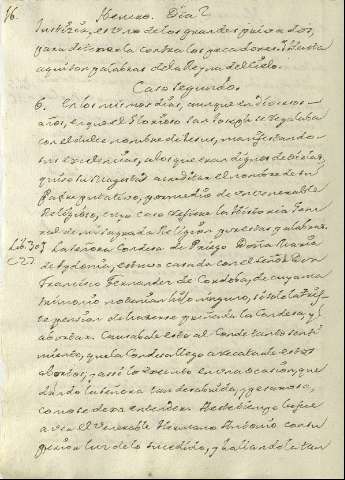 16. Henero. Dia 2
Justicia, es uno de los grandes
para detenerla contra los pecadores. Hasta
aqui son palabras de la Reyna del Cielo.
Caso segundo.
6. En los mismos dias, aunque en diversos
años, en que el Glorioso San Joseph se regalaba
con el dulce nombre de Jesus, manifestando
sus excelencias, a los que eran dignos de oirlas,
quiso su Magestad acreditar el nombre de su
Padre putativo, por medio de un venerable
Religioso, cuyo caso refiere la Historia Gene
ral de mi sagrada Religion por estas palabras.
Lib. 30 La Señora Condesa de Priego Doña Maria
C. 27. de estuvo casada con el Señor Don
Francisco Fernandez de Cordoba, de cuyo ma
trimonio no tenian hijo ninguno, si solo la tris
te pension de hacerse preñada la Condesa, y
abortar. Causabale esto al Conde tanto senti
miento, que la Condesa llego a recatarle estos
abortos, y assi lo en una ocasion, que
dando la Señora tan desabrida, y penarosa,
como se dexa entender. A este tiempo la fue
a ver el Venerable Hermano Antonio con su
perior luz de lo sucedido, y hallandola tan